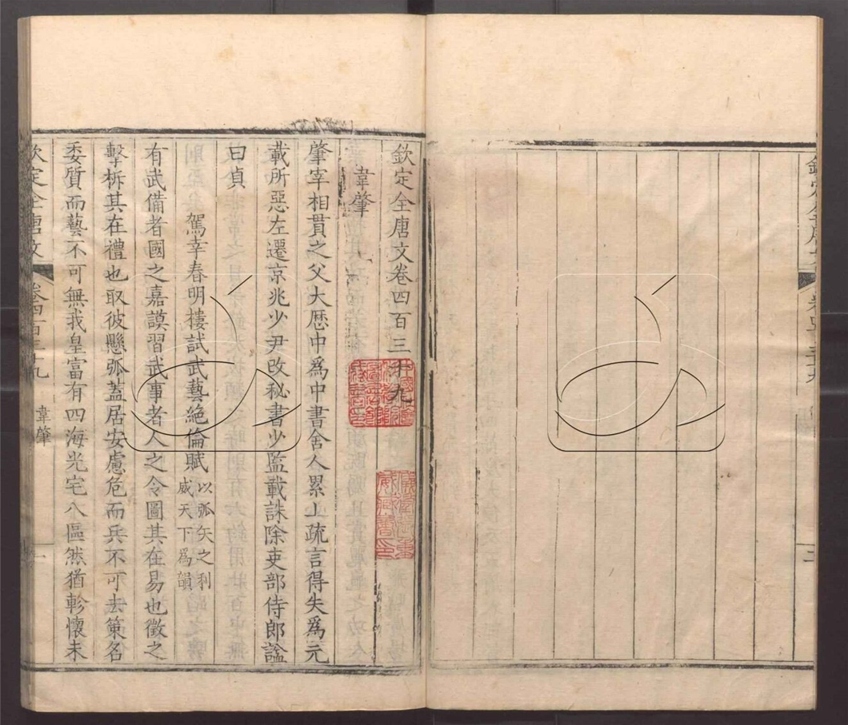 欽定全唐文卷四百三十九
韋肇
肇宰相貫之父大歷中爲中書舍人累上疏言得失爲元
載所惡左遷京兆少尹改秘書少監載誅除吏部侍郎諡
曰貞
駕幸春明樓試武藝絶倫賦以弧矢之利威天下爲韻
有武備者國之嘉謨習武事者人之令圖其在易也徵之
擊柝其在禮也取彼懸弧蓋居安慮危而兵不可去策名
委質而藝不可無我皇富有四海光宅八區然猶軫懷未
欽定全唐文
卷四百三十九
韋肇
一